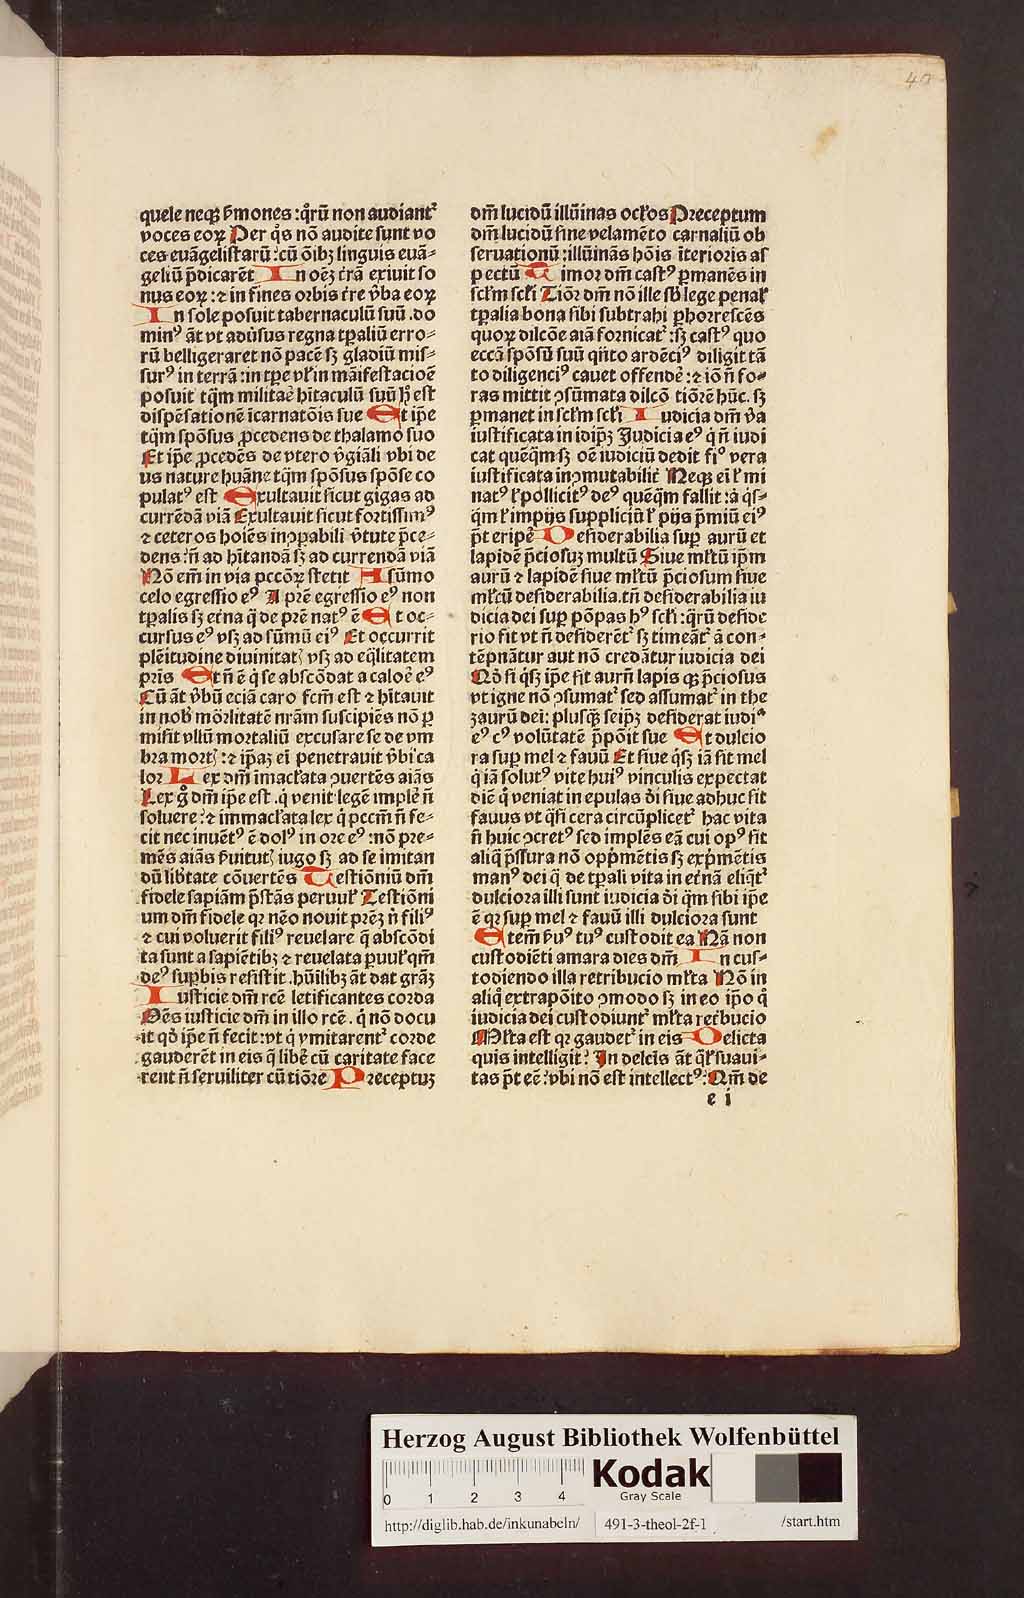 40
quele neqꝫ ẜmones : qͦrū non audiantᷣ
voces eoꝝ Per qͦs nō audite sunt vo
ces euāgelistarū : cū ōibꝫ linguis euā⸗
geliū p̄dicarēt In oēꝫ t̄rā exiuit so
nus eoꝝ : ⁊ in fines orbis t̄re v̄ba eoꝝ
In sole posuit tabernaculū suū . do
minꝰ āt vt adūsus regna tꝑaliū erro⸗
rū belligeraret nō pacē sꝫ gladiū mis⸗
surꝰ in terrā : in tꝑe vł in māifestacioē
posuit tq̄m militaē hitaculū suū
dispēsationē īcarnatōis sue Et ip̄e
tq̄m spōsus ꝓcedens de thalamo suo
Et ip̄e ꝓcedēs de vtero v̄giāli vbi de
us nature huāne tq̄m spōsus spōse co
pulatꝰ est Exultauit sicut gigas ad
currēdā viā Exultauit sicut fortissimꝰ
⁊ ceteros hoiēs inꝯpabili v̄tute p̄ce⸗
dens : n̄ ad hītandā sꝫ ad currendā viā
Nō em̄ in via pccōꝝ stetit A sūmo
celo egressio eꝰ A prē egressio eꝰ non
tꝑalis sꝫ et̄na q̄ de prē natꝰ ē Et oc⸗
cursus eꝰ vsꝫ ad sūmū eiꝰ Et occurrit
plēitudine diuinitatꝭ vsꝫ ad eq̄litatem
pris Et n̄ ē q̄ se abscōdat a caloē eꝰ
Cū āt v̄bū eciā caro fcm̄ est ⁊ hītauit
in nobꝭ mōrlitatē nrām suscipiēs nō ꝑ
misit vllū mortaliū excusare se de vm
bra mortꝭ : ⁊ ip̄aꝫ ei penetrauit v̄bi ca
lor Lex dm̄ imacl̄ata ꝯuertēs aiās
Lex gͦ dm̄ ip̄e est . q̄ venit legē implē n̄
soluere : ⁊ immacl̄ata lex q̄ pccm̄ n̄ fe⸗
cit nec inuētꝰ ē dolꝰ in ore eꝰ : nō pre⸗
mēs aiās ẜuitutꝭ iugo sꝫ ad se imitan
dū lib̄tate cōuertēs Testiōniū dm̄
fidele sapiām p̄stās peruuł Testiōni
um dm̄ fidele qꝛ nēo nouit prēꝫ n̄ filiꝰ
⁊ cui voluerit filiꝰ reuelare q̄ abscōdi
ta sunt a sapiētibꝫ ⁊ reuelata ꝑuuł qm̄
deꝰ suꝑbis resistit . hūilibꝫ āt dat grāꝫ
Iusticie dm̄ rcē letificantes corda
Oēs iusticie dm̄ in illo rcē . q̄ nō docu
it qđ ip̄e n̄ fecit : vt q̄ ymitarentᷣ corde
gauderēt in eis q̄ liberē cū caritate face
rent n̄ seruiliter cū tiōre Preceptuꝫ
dm̄ lucidū illūinas ocłos Preceptum
dm̄ lucidū sine velamēto carnaliū ob
seruationū : illūinās hōis īterioris as
pectū Timor dm̄ castꝰ ꝑmanēs in
scłm scłi Tiōr dm̄ nō ille sb̄ lege penał
tꝑalia bona sibi subtrahi ꝑhorrescēs
quoꝝ dilcōe aīa fornicatᷣ : sꝫ castꝰ quo
eccā spōsū suū qn̄to ardēciꝰ diligit tā
to diligenciꝰ cauet offendē : ⁊ iō n̄ fo⸗
ras mittit ꝯsūmata dilcō tiōrē hūc . sꝫ
ꝑmanet in scłm scłi Iudicia dm̄ v̄a
iustificata in idip̄ꝫ Iudicia eꝰ q̄ n̄ iudi
cat quēq̄m sꝫ oē iudiciū dedit fiꝰ vera
iustificata inꝯmutabilit̄ Neqꝫ ei ł mi
natꝰ ł pollicitꝰ deꝰ quēq̄m fallit : ā q̄s⸗
q̄m ł impijs suppliciū ł pijs p̄miū eiꝰ
p̄t eripē Desiderabilia suꝑ aurū et
lapidē p̄ciosuꝫ multū Siue mł̄tū ip̄m
aurū ⁊ lapidē siue mł̄tū p̄ciosum siue
mł̄cū desiderabilia . tn̄ desiderabilia iu
dicia dei suꝑ pōpas hꝰ scłi : qͦrū deside
rio fit vt n̄ desiderētᷣ sꝫ timeātᷣ ā con⸗
tēpnātur aut nō credātur iudicia dei
Nō si q̄sꝫ ip̄e sit aurū lapis qꝫ p̄ciosus
vt igne nō ꝯsumatᷣ sed assumatᷣ in the
zaurū dei : plusqꝫ seip̄ꝫ desiderat iudiᵃ
eꝰ cꝰ volūtatē p̄pōit sue Et dulcio
ra suꝑ mel ⁊ fauū Et siue q̄sꝫ iā sit mel
q̄ iā solutꝰ vite huiꝰ vinculis expectat
diē q̄ veniat in epulas dī siue adhuc sit
fauus vt q̄si cera circūplicetᷣ hac vita
n̄ huic ꝯcretꝰ sed implēs eā cui opꝰ sit
aliq̄ p̄ssura nō opp̄mētis sꝫ exp̄mētis
manꝰ dei q̄ de tꝑali vita in et̄nā eliq̄tᷣ
dulciora illi sunt iudicia dī q̄m sibi ip̄e
ē qꝛ suꝑ mel ⁊ fauū illi dulciora sunt
Etem̄ ẜuꝰ tuꝰ custodit ea Nā non
custodiēti amara dies dm̄ In cus⸗
todiendo illa retribucio mł̄ta Nō in
aliq̄ extrapōito ꝯmodo sꝫ in eo ip̄o q̄
iudicia dei custodiuntᷣ mł̄ta ret̄bucio
Mł̄ta est qꝛ gaudetᷣ in eis Delicta
quis intelligit? In delcīs āt q̄ł suaui⸗
tas p̄t eē : vbi nō est intellectꝰ : Qm̄ de
e i
Herzog August Bibliothek Wolfenbüttel
0 1 2 3 4
Kodak
Gray Scale
http://diglib.hab.de/inkunabeln/ 491-3-theol-2f-1 /start.htm